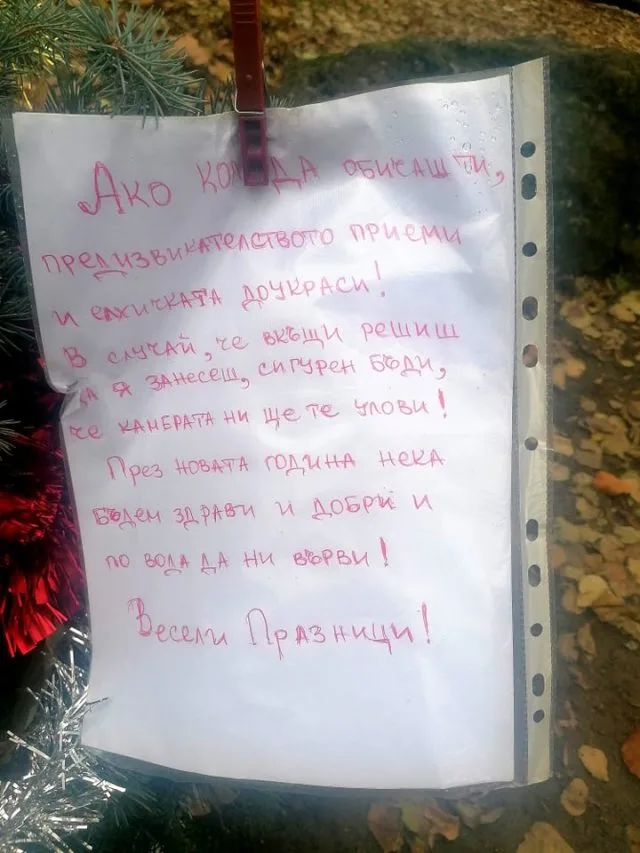 Ако коледа обичаш ти,
предизвикателството приеми
и елхичката доукраси!
В случай, че вкъщи решиш
да я занесеш, сигурен бъди,
че камбрата ни ще те улови!
През новата година нека
бъдем здрави и добри и
по вода да ни върви!
Весели Празници!